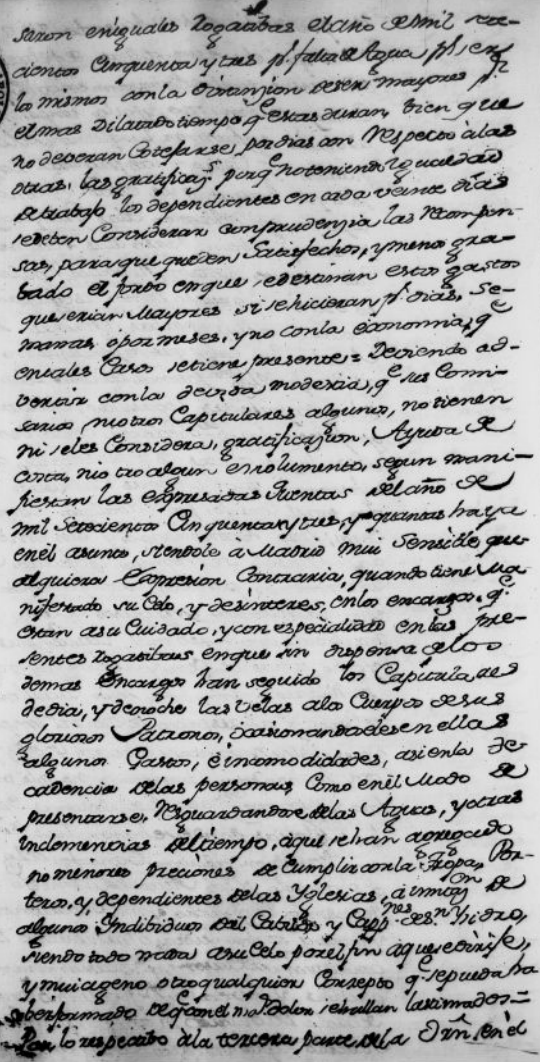 saron en iguales Rogatibas el año de mil sete-
cientos Cinquenta y tres p.r falta de Agua p.r ser
lo mismos con la distinzion de ser mayores p.r
el mas Dilatado tiempo q.e estas duran, bien que
no deveran Cotejarse por dias con Respecto à las
otras, las gratificaz.s porq.e no teniendo igualdad
de trabajo los dependientes en cada veinte dias
se deben Considerar con prudenzia las Recompen-
sas, para que queden Satisfechos, y menos gra-
bado el fondo en que se destinan estos gastos
que serian Mayores si se hicieran p.r dias, Se-
manas, ó por meses, y no con la economia, q.e
en tales Casos se tiene presente = Deviendo ad-
vertir con la devida modestia, q.e sus Comi-
sarios, ni otros Capitulares algunos, no tienen
ni se les Considera, gratificazion, Ayuda de
costa, ni otro algun emolumento, segun mani-
fiestan las expresadas Quentas del año de
mil setecientos Cinquenta y tres, y quantas haya
en el asunto, siendole a Madrid mui Sensible qual-
quiera Expresion Contraria, quando tiene Ma-
nifestado su Celo, y desinteres, en los encargos q.e
estan a su Cuidado, y con especialidad en las pre-
sentes Rogatibas en que sin dispensa de los
demas Encargos han seguido los Capitulares
de dia, y de noche las Velas alos Cuerpos de sus
gloriosos Patronos, ocasionandoles en ellas
algunos Gastos, è incomodidades, asi en la de-
cadencia de las personas Como en el Modo de
presentarse, Resguardandose de las Aguas, y otras
Indemencias del tiempo, a que se han agregado
no menores preciones de Cumplir con la Tropa, Por-
teros, y dependientes de las Yglesias, à
algunos Yndibiduos del Cabildo y Capp.nes de S.n Ysidro,
siendo todo nada a su Celo por el fin a que se dirije,
y mui ageno otro qualquier Conzepto q.e se pueda ha
ber formado de lastimados =
Por lo respectibo à la tercera parte de la Orn. en el